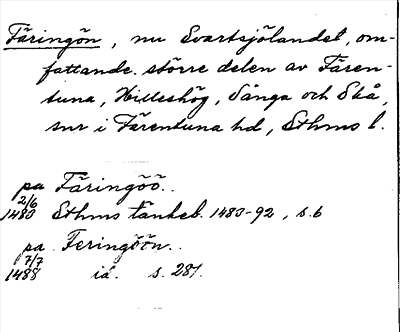 Färingön, nu Svartsjölandet, om-
fattande större delen av Fären-
tuna, Hilleshög, Sånga och Skå,
snr i Färentuna hd, Sthms l.
pa Färingöö..
2/6
1480 Sthms tänkeb. 1483-92, s. 6
pa Feringöön..
7/7
1488 iå. s. 281.